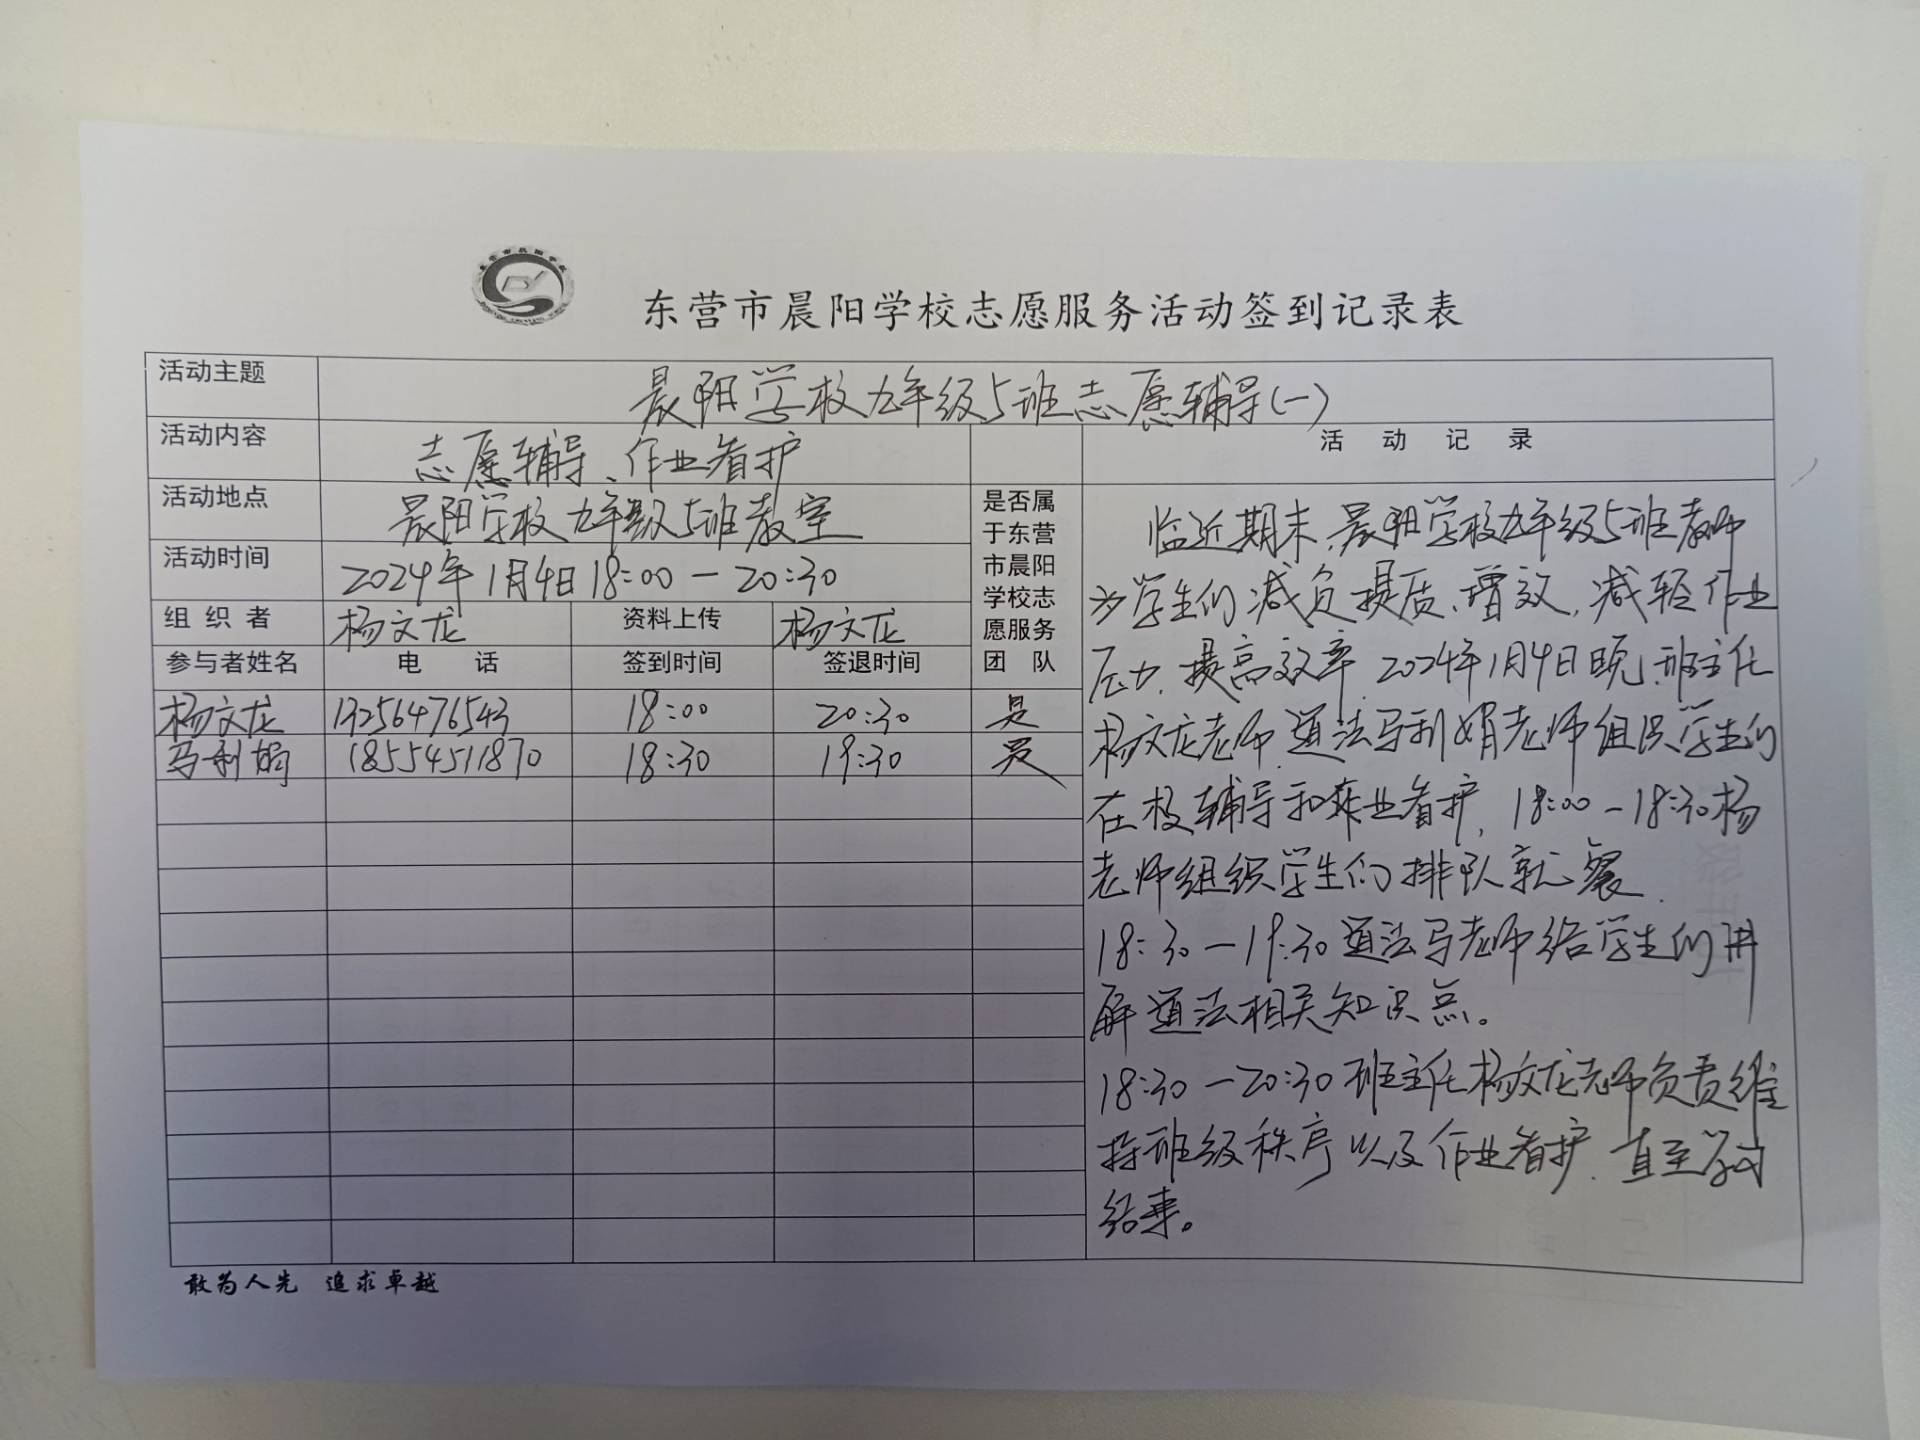 东营市晨阳学校
东营市晨阳学校志愿服务活动签到记录表
活动主题 晨阳学校九年级5班志愿辅导(一)
活动内容 志愿辅导、作业看护
活动地点 晨阳学校九年级5班教室
活动时间 2024年1月4日18:00-20:30
组织者 杨文龙 资料上传 杨文龙
参与者姓名 电话 签到时间 签退时间
是否属
于东营
市晨阳
学校志
愿服务
团队
杨文龙 13256476543 18:00 20:30 是
马利娟 18554511870 18:30 19:30 是
活动记录
临近期末,晨阳学校九年级5班教师
为学生们减负提质、增效,减轻作业
压力,提高效率,2024年1月4日晚,班主任
杨文龙老师,道法马利娟老师组织学生们
在校辅导和作业看护,18:00-18:30杨
老师组织学生们排队就餐.
18:30-19:30道法马老师给学生们讲
解道法相关知识点。
18:30-20:30班主任杨文龙老师负责维
持班级秩序以及作业看护.直至学习
结束。
敢为人先 追求卓越